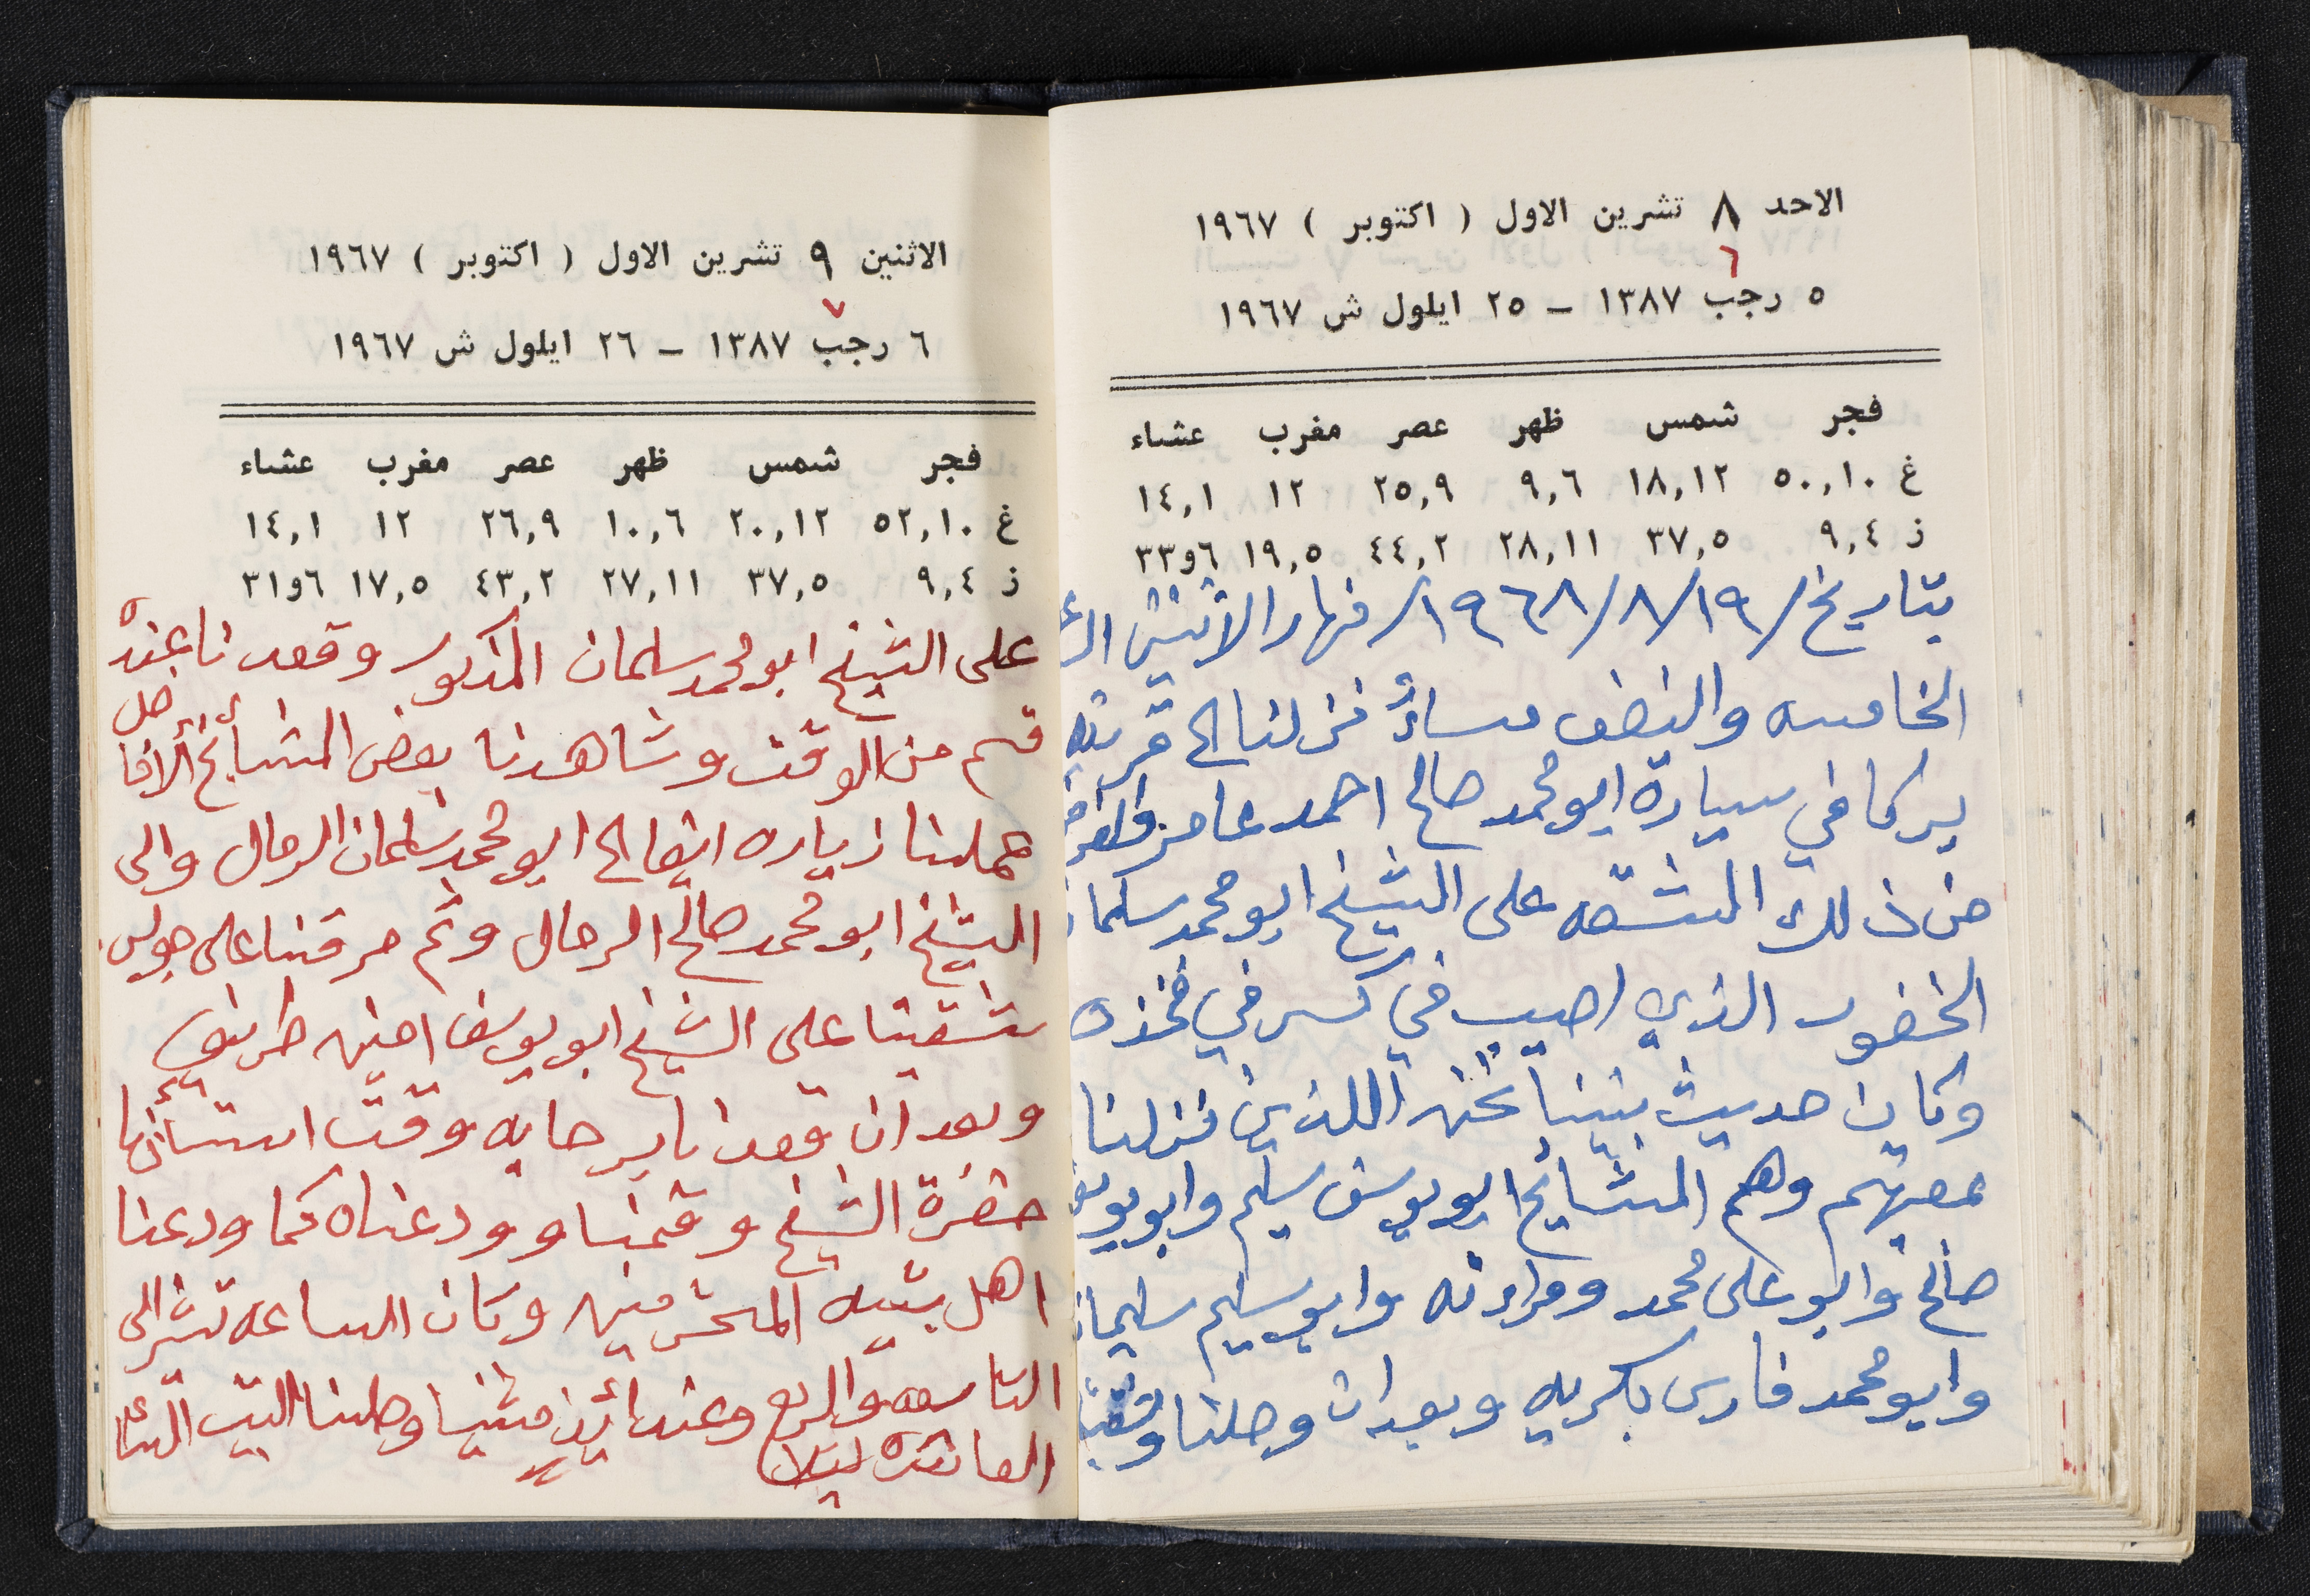 الاحد ٨ تشرين الاول ( اكتوبر ) ١٩٦٧
٦
٥ رجب ١٣٨٧ – ٢٥ ايلول ش ١٩٦٧
فجر شمس ظهر عصر مغرب عشاء
غ ٥٠,١٠ ١٨,١٢ ٩,٦ ٢٥,٩ ١٢ ١٤,١
ز ٩,٤ ٣٧,٥ ٢٨,١١ ٤٤,٢ ١٩,٥ ٦و٣٣
بتاريخ /١٩/٨/١٩٦٨/ نهار الاثنين
الخامسه والنصف مساءً نزلنا الى قرية
يركا في سيارة ابو محمد صالح احمد عامر والغرض
من ذلك المشقه على الشيخ ابو محمد سلمان
الخفور الذي اصيب في كسر في فخذه
وكان حديث بيننا نحن اللذين نزلنا
معيتهم وهم المشايخ ابو يوسف سليم وابو يوسف
صالح وابو علي محمد ومراءته وابو سليم سليمان
وابو محمد فارس بكريه وبعد ان وصلنا وشقينا
الاثنين ٩ تشرين الاول ( اكتوبر ) ١٩٦٧
٧
٦ رجب ١٣٨٧ – ٢٦ ايلول ش ١٩٦٧
فجر شمس ظهر عصر مغرب عشاء
غ ٥٢,١٠ ٢٠,١٢ ١٠,٦ ٢٦,٩ ١٢ ١٤,١
ز ٩,٤ ٣٧,٥ ٢٧,١١ ٤٣,٢ ١٧,٥ ٦و٣١
على الشيخ ابو محمد سلمان المذكور وقعدنا عنده
قسم من الوقت وشاهدنا بعض المشائخ الافاضل
عملنا زياره ايضا الى ابو محمد سلمان الرمال والى
الشيخ ابو محمد صالح الرمال وثم مرقنا على جولس
شقينا على الشيخ ابو يوسف امين طريف
وبعد ان قعدنا برحابه وقت استأذنا
حضرة الشيخ وقمنا وودعناه كما ودعنا
اهل بيته المحترمين وكان الساعه تشير الى
التاسعه والربع وعندائذٍ مشينا وصلنا البيت الساعه
العاشره ليلا